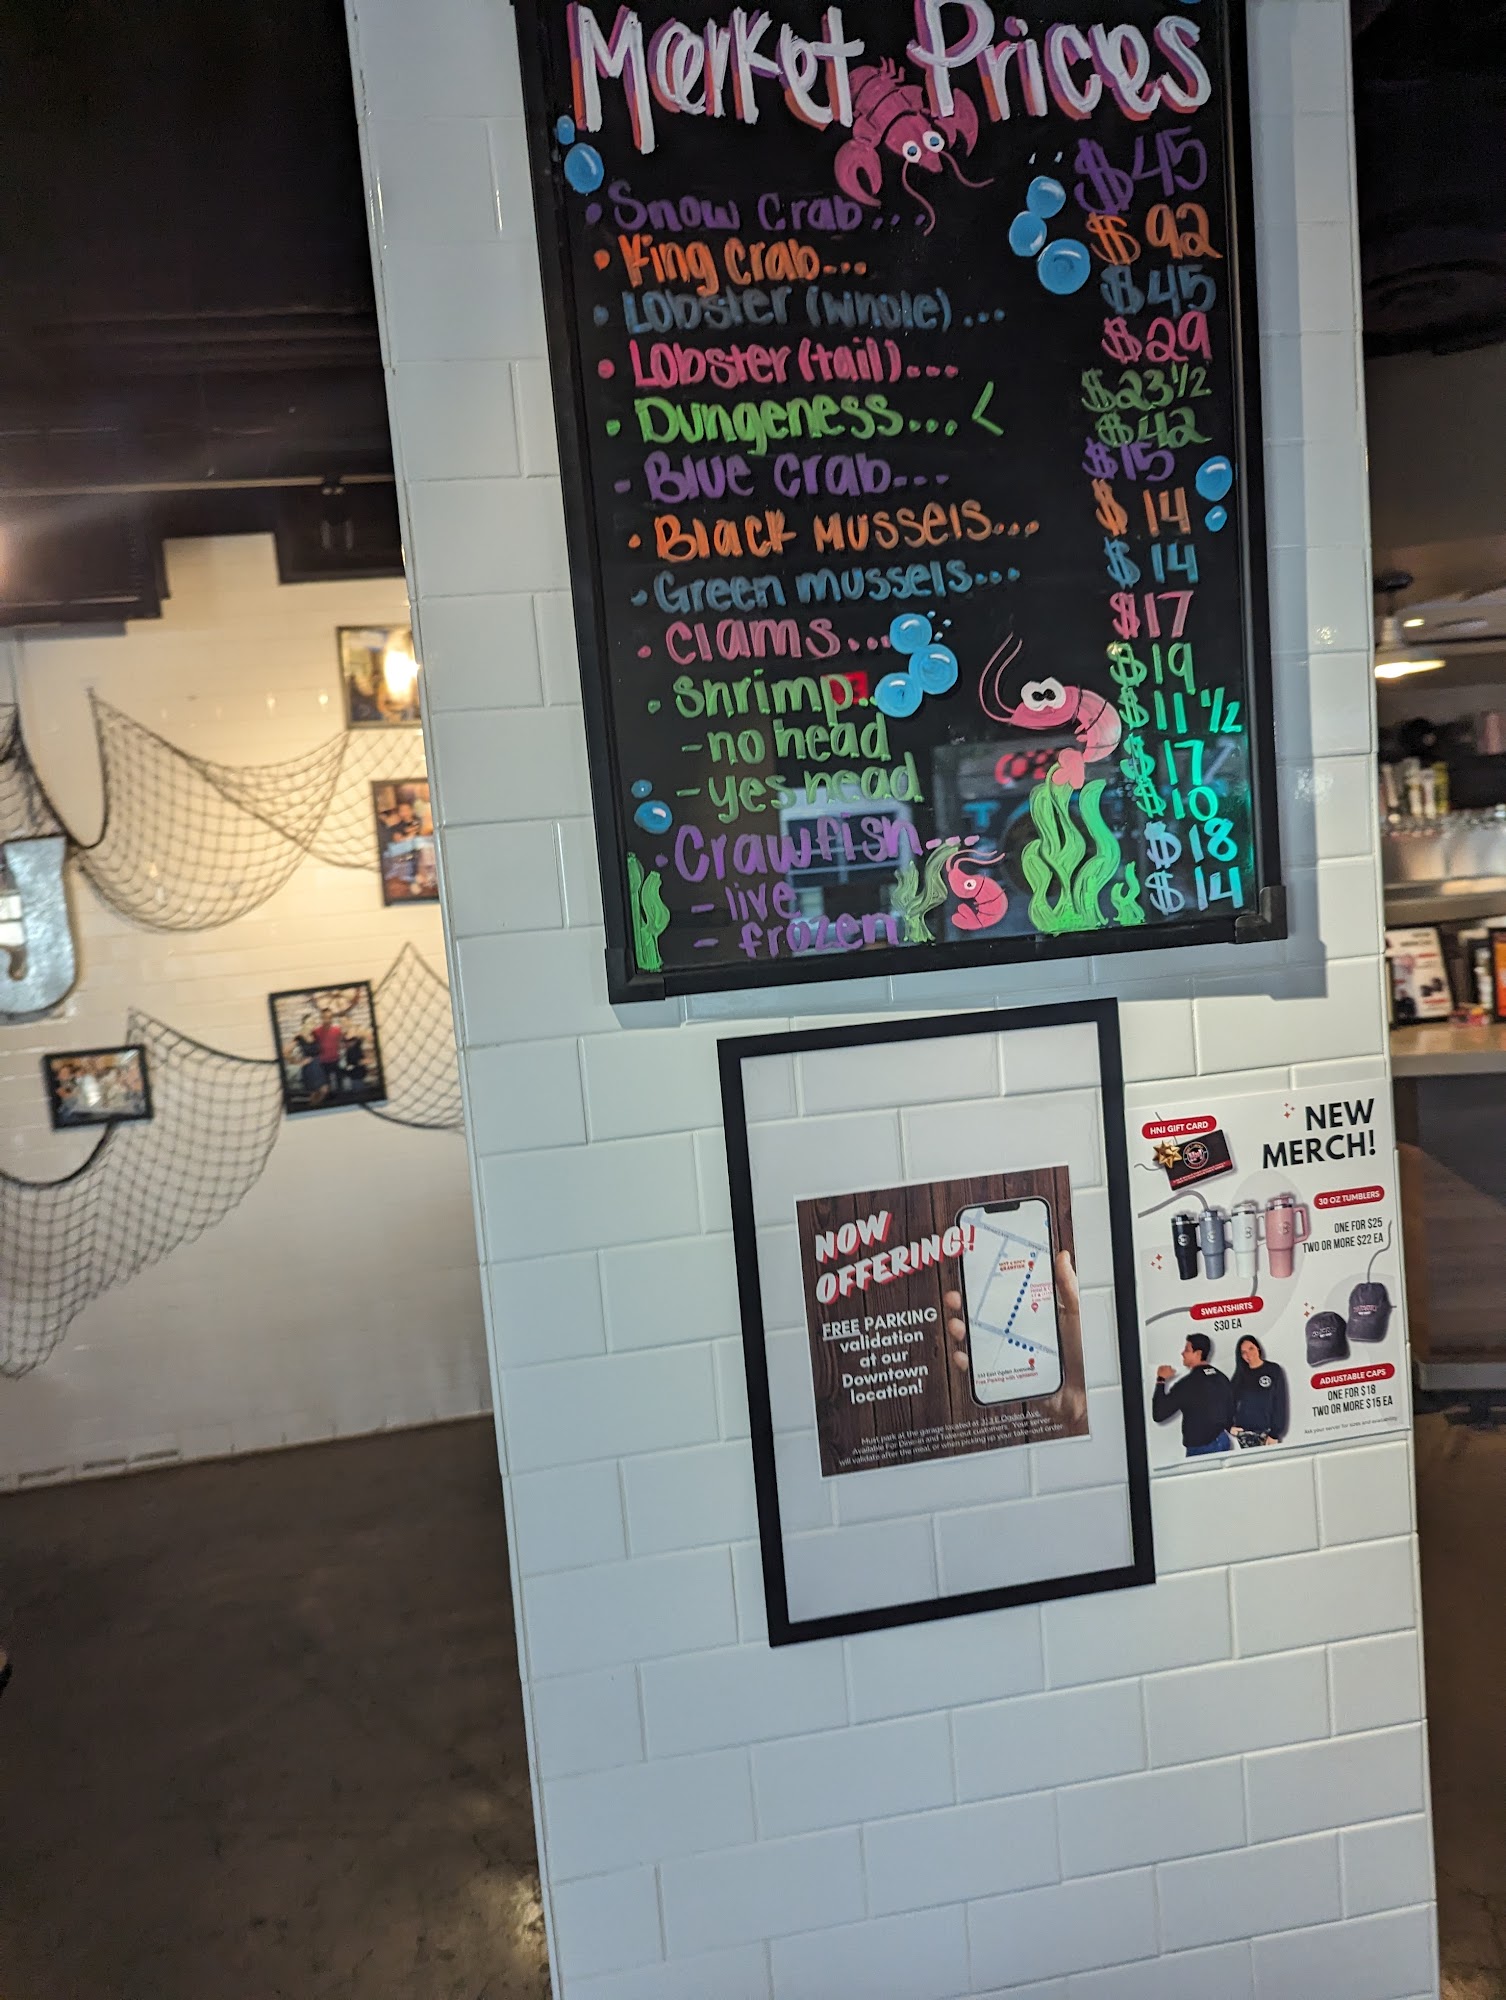 Market Prices
• Snow Crab... $45
• King Crab... $92
• Lobster (whole)... $45
• Lobster (tail)... $29
• Dungeness... < $23 1/2
$42
- Blue Crab... $15
• Black Mussels... $14
• Green mussels... $14
• Clams... $17
• Shrimp.. $19
$11 1/2
- no head $17
- yes head $10
• Crawfish... $18
- live $14
- frozen
NOW
OFFERING!
FREE PARKING
validation
at our
Downtown
location!
Must park at the garage located at 313 E Ogden Ave.
Available For Dine-in and Take-out customers. Your server
will validate after the meal, or when picking up your take-out order
Free Parking with Validation
NEW
MERCH!
HNJ GIFT CARD
30 OZ TUMBLERS
ONE FOR $25
TWO OR MORE $22 EA
SWEATSHIRTS
$30 EA
ADJUSTABLE CAPS
ONE FOR $18
TWO OR MORE $15 EA
Ask your server for sizes and availability
J